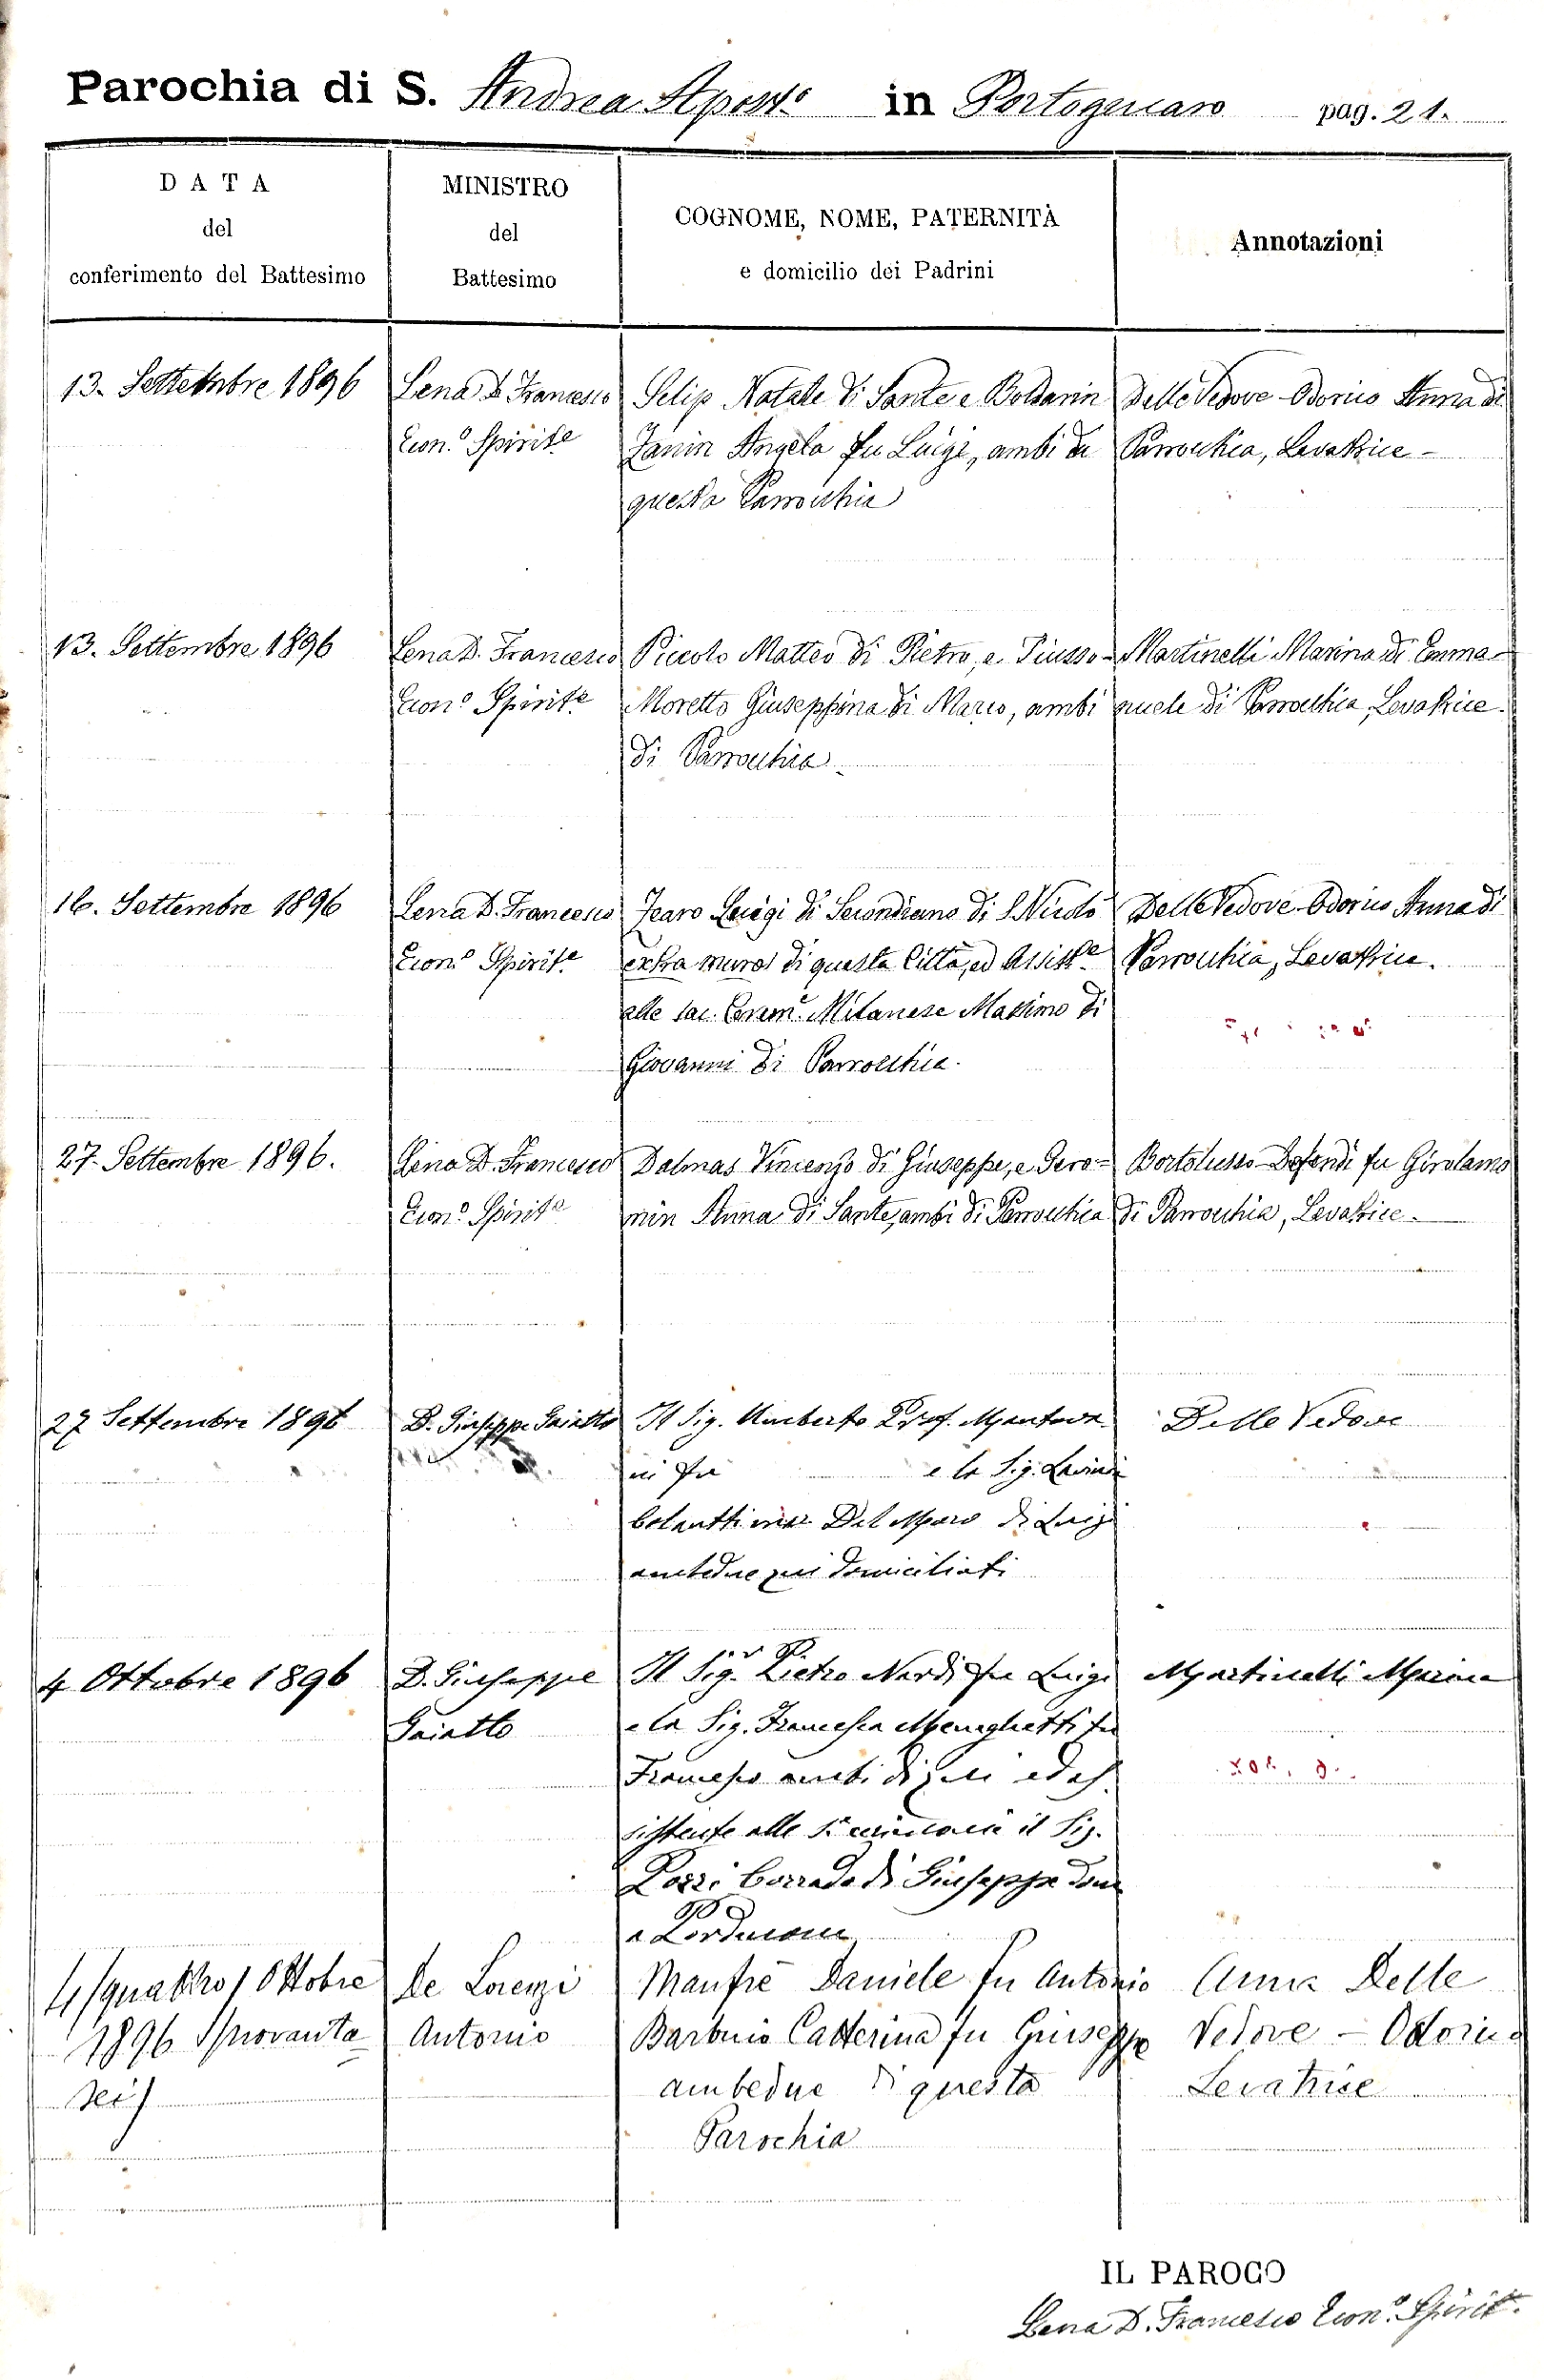 Parochia di S. Andrea Apost.º in Portogruaro pag. 21.
DATA
del
conferimento del Battesimo
MINISTRO
del
Battesimo
COGNOME, NOME, PATERNITÀ
e domicilio dei Padrini
Annotazioni
13. Settembre 1896
Lena D. Francesco
Econ.º Spirit.e
Selip Natale di Sante e Boldarin
Zanin Angela fu Luigi, ambi di
questa Parrocchia
Delle Vedove-Odorico Anna di
Parrocchia, Levatrice -
13. Settembre 1896
Lena D. Francesco
Econ.º Spirit.e
Piccolo Matteo di Pietro, e Piusso-
Moretto Giuseppina di Marco, ambi
di Parrocchia.
Martinelli Marina di Emma-
nuele di Parrocchia, Levatrice.
16. Settembre 1896
Lena D. Francesco
Econ.º Spirit.e
Luigi di Secondiano di S. Nicolò
extra muros di questa Città, ed Assist.e
alle sac. Cerem.e Milanese Massimo di
Giovanni di Parrocchia.
Delle Vedove-Odorico Anna di
Parrocchia, Levatrice.
27. Settembre 1896.
Lena D. Francesco
Econ.º Spirit.e
Dalmas Vincenzo di Giuseppe, e Gero=
nin Anna di Sante, ambi di Parrocchia
Bortolusso-Defendi fu Girolamo
di Parrocchia, Levatrice.
27 Settembre 1896
D. Giuseppe Gaiatto
Il Sig. Umberto Prof. Mantova
ni fu e la Sig. Lavinia
Del Moro di Luigi
ambedue qui domiciliati
Delle Vedove
4 Ottobre 1896
D. Giuseppe
Gaiatto
Il Sig.r Pietro Nardi fu Luigi
e la Sig. Francesca Meneghetti fu
Francesco ambi di qui ed as
sistente alle il Sig.
Corrado di Giuseppe dom
a Pordenone
Martinelli Marina
4 /quattro/ Ottobre
1896 /novanta
sei/
De Lorenzi
Antonio
Manfrè Daniele fu Antonio
Barbuio Catterina fu Giuseppe
ambedue di questa
Parochia
Anna Delle
Vedove - Odorico
Levatrice
IL PAROCO
Lena D. Francesco Econ.º Spirit.